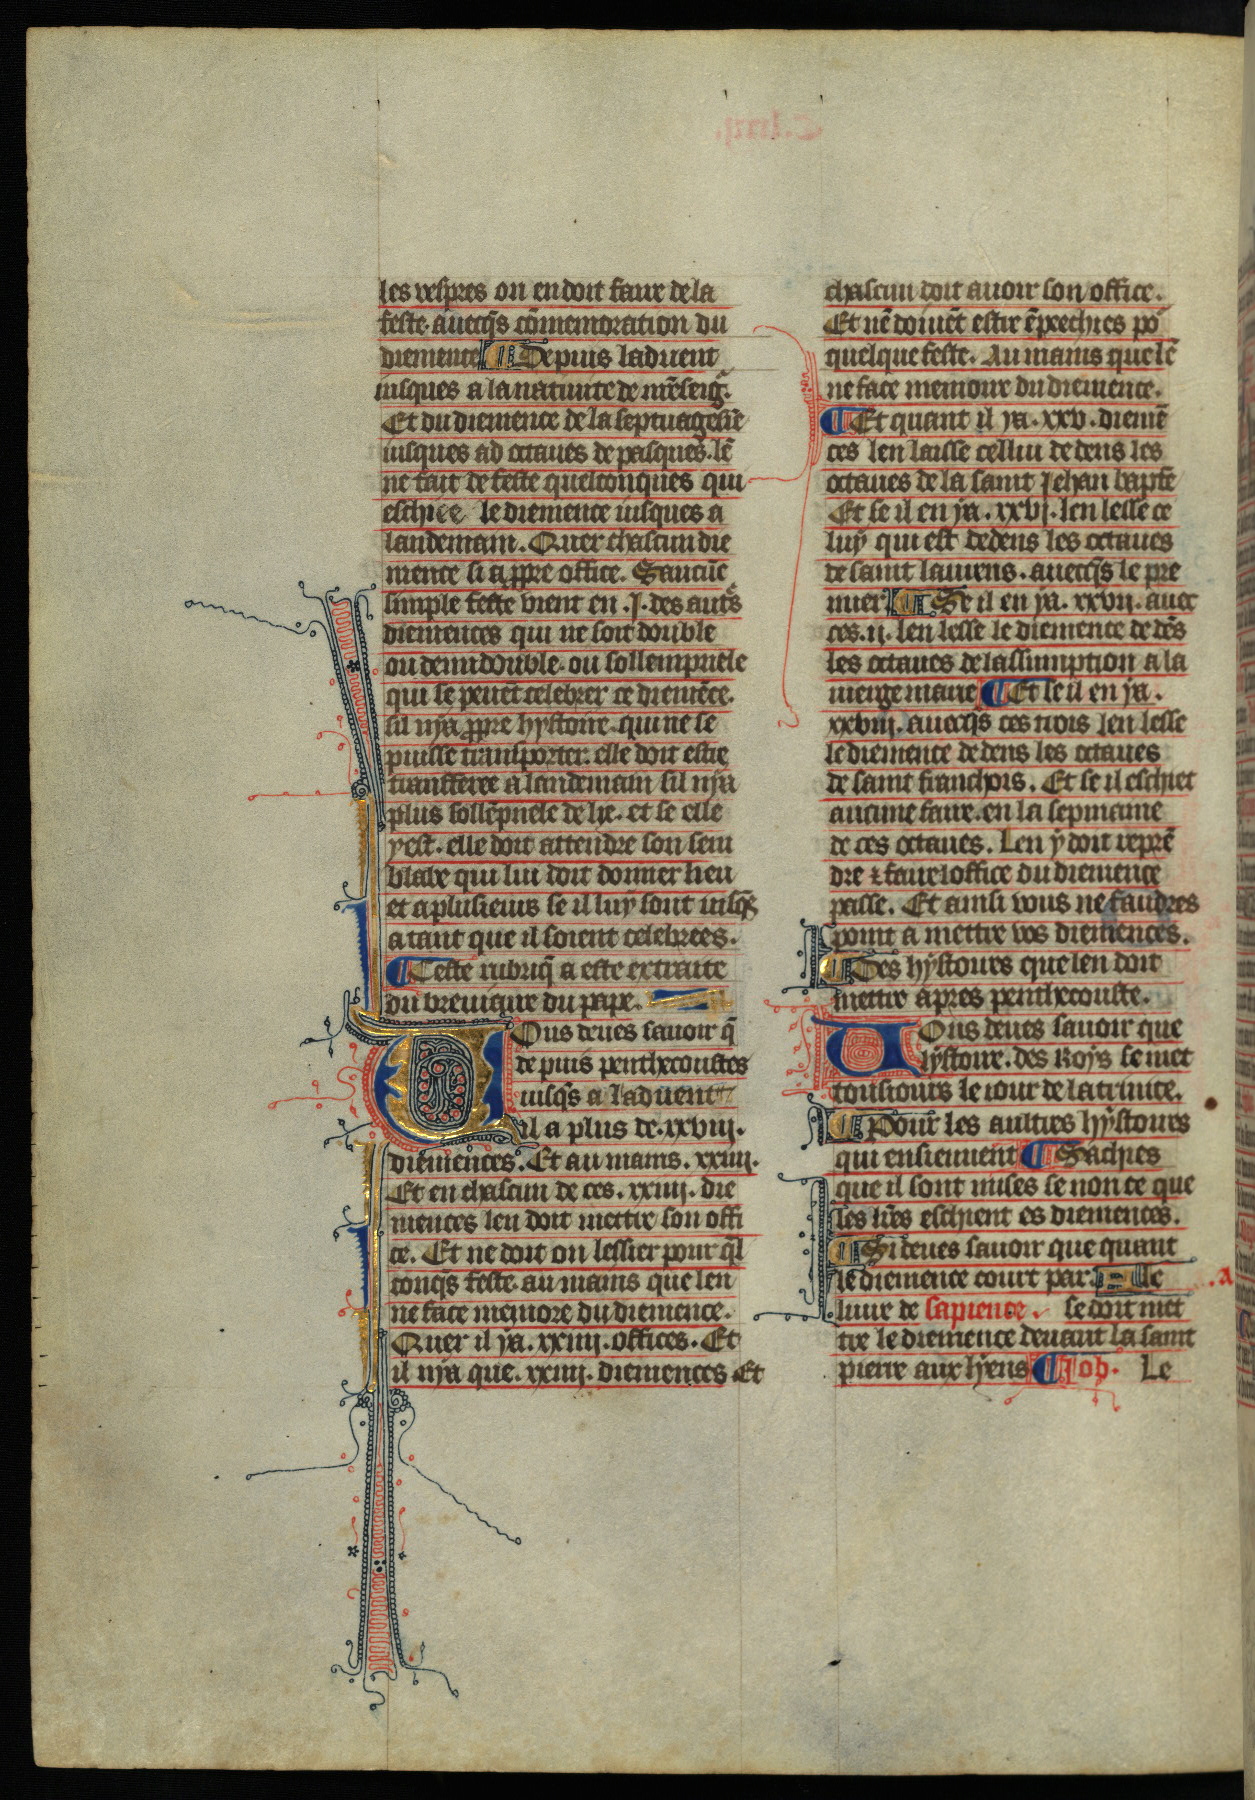 les vespres on en doit faire de la
feste. auecq̃s cõmemoration du
diemence ¶ Depuis laduent
iusques a la natiuite de nr̃eseigr̃.
Et du diemence de la septuagesiẽ
iusques ad octaues de pasques. lẽ
ne fait de feste quelconques qui
eschiee le diemence iusques a
landemain. Quer chascun die
mence si a ppre office. Saucũe
simple feste vient en .j. des autr̃s
diemences qui ne soit double
ou demi double. ou sollempnele
qui se peuẽt celebrer ce diemẽce.
sil nya ppre hystoire. qui ne se
puisse transporter. elle doit estre
transferee a landemain sil nya
plus sollẽpnele de lye. et se elle
y est. elle doit attendre son sem
blable qui lui doit donner lieu
et a plusieurs se il luy sont iusq̃s
a tant que il soient celebrees.
¶ Ceste rubriq̃ a este extraite
du breuiaire du pape.
Uous deues sauoir q̃
de puis penthecoustes
iusq̃s a laduent
il a plus de .xxviij.
diemences. Et au mains .xxiiij.
Et en chascun de ces .xxiiij. die
mences len doit mettre son offi
ce. Et ne doit on lessier pour ql̃
conq̃s feste. au mains que len
ne face memore du diemence.
Quer il ya .xxiiij. offices. Et
il nya que .xxiiij. diemences Et
chascun doit auoir son office.
Et nẽ doiuẽt estre ẽpechies po᷑
quelque feste. Au mains que lẽ
ne face memoire du diemence.
¶ Et quant il ya .xxv. diemẽ
ces len laisse cellui dedens les
octaues de la saint Jehan bapt̃e
Et se il en ya .xxvj. len lesse ce
luy qui est dedens les octaues
de saint laurens. auecq̃s le pre
mier ¶ Se il en ya .xxvij. auec
ces .ij. len lesse le diemence de dẽs
les octaues de lassumption a la
uierge marie ¶ Et se il en ya .
xxviij. auecq̃s ces trois len lesse
le diemence dedens les octaues
de saint franchois. Et se il eschiet
aucune faire. en la sepmaine
de ces octaues. Len y doit reprẽ
dre ⁊ faire loffice du diemence
passe. Et ainsi vous ne faudres
point a mettre vos diemences.
¶ Des hystoires que len doit
mettre apres penthecouste.
Uous deues sauoir que
lystoire. des Roys se met
tousiours le iour de la trinite.
¶ Pour les aultres hystoires
qui ensieuuent ¶ Sachies
que il sont mises se non ce que
les lr̃es eschient es diemences.
¶ Si deues sauoir que quant
le diemence court par .A. Le
liure de sapience. se doit met
tre le diemence deuant la saint
pierre aux lyens ¶ Job. Le